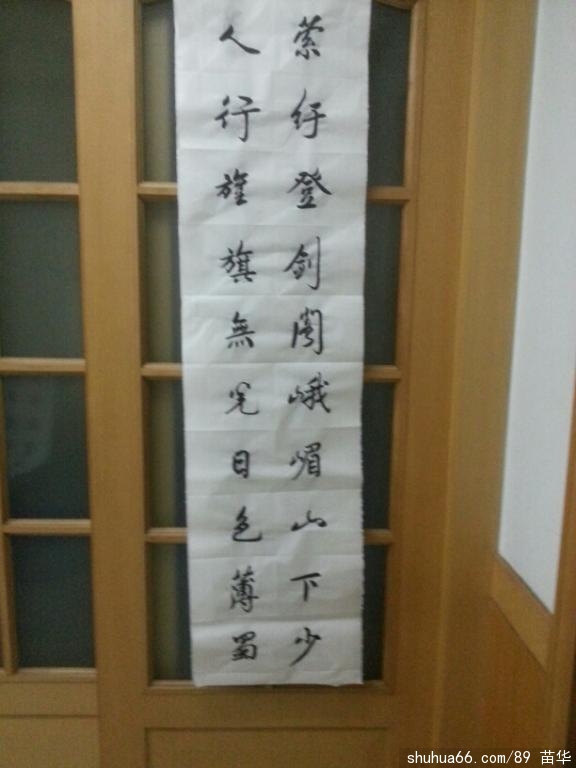 萦纡登剑阁峨嵋山下少
人行旌旗無光日色薄蜀
shuhua66.com/89 苗华